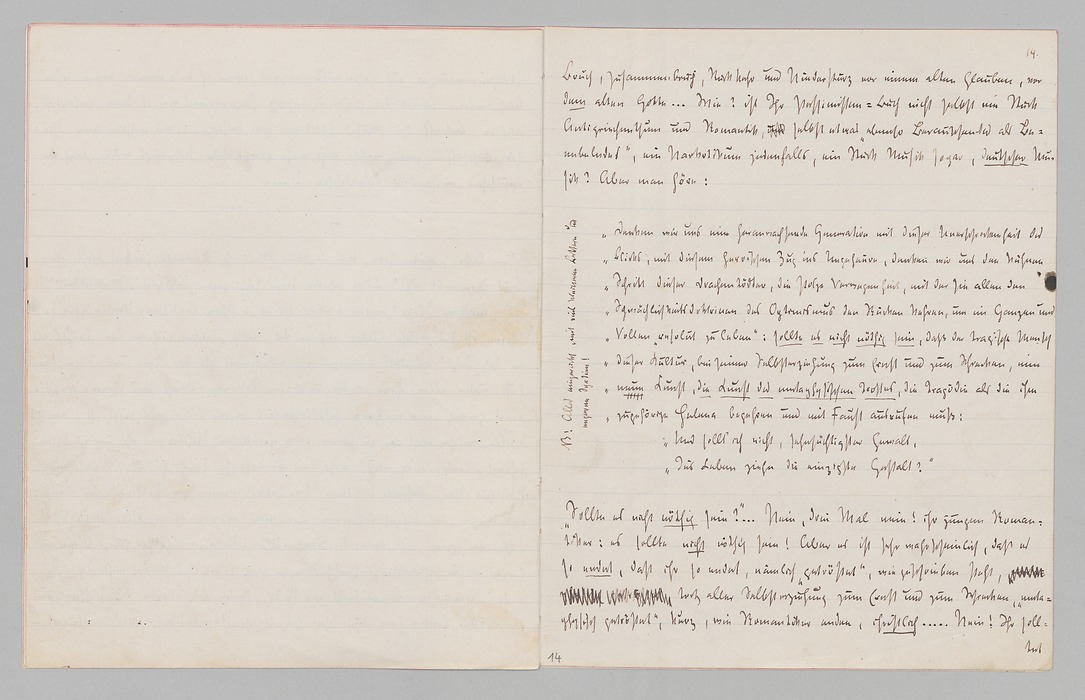 14.
Bruch, Zusammenbruch, Rückkehr und Niedersturz vor einem alten Glauben, vor
dem alten Gotte... Wie? ist Ihr Pessimisten=Buch nicht selbst ein Stück
Antigriechenthum und Romantik, selbst etwas „ebenso Berauschendes als Be=
nebelndes“, ein Narkotikum jedenfalls, ein Stück Musik sogar, deutscher Mu=
sik? Aber man höre:
„Denken wir uns eine heranwachsende Generation mit dieser Unerschrockenheit des
„Blicks, mit diesem heroischen Zug ins Ungeheure, denken wir uns den kühnen
„Schritt dieser Drachentödter, die stolze Verwegenheit, mit der sie allen den
„Schwächlichkeitsdoktrinen des Optimismus den Rücken kehren, um im Ganzen und
„Vollen „resolut zu leben“: sollte es nicht nöthig sein, daß der tragische Mensch
„dieser Kultur, bei seiner Selbsterziehung zum Ernst und zum Schrecken, eine
„neue Kunst, die Kunst des metaphysischen Trostes, die Tragödie als die ihm
„zugehörige Helena begehren und mit Faust ausrufen muß:
„Und sollt ich nicht, sehnsüchtigster Gewalt,
„Ins Leben ziehn die einzigste Gestalt?“
NB! Alles eingerückt, und mit kleineren Lettern
„Sollte es nicht nöthig sein?“... Nein, drei Mal nein! ihr jungen Roman=
tiker: es sollte nicht nöthig sein! Aber es ist sehr wahrscheinlich, daß es
so endet, daß ihr so endet, nämlich „getröstet“, wie geschrieben steht,
trotz aller Selbsterziehung zum Ernst und zum Schrecken, „meta=
physisch getröstet“, kurz, wie Romantiker enden, christlich..... Nein! Ihr soll=
tet
14